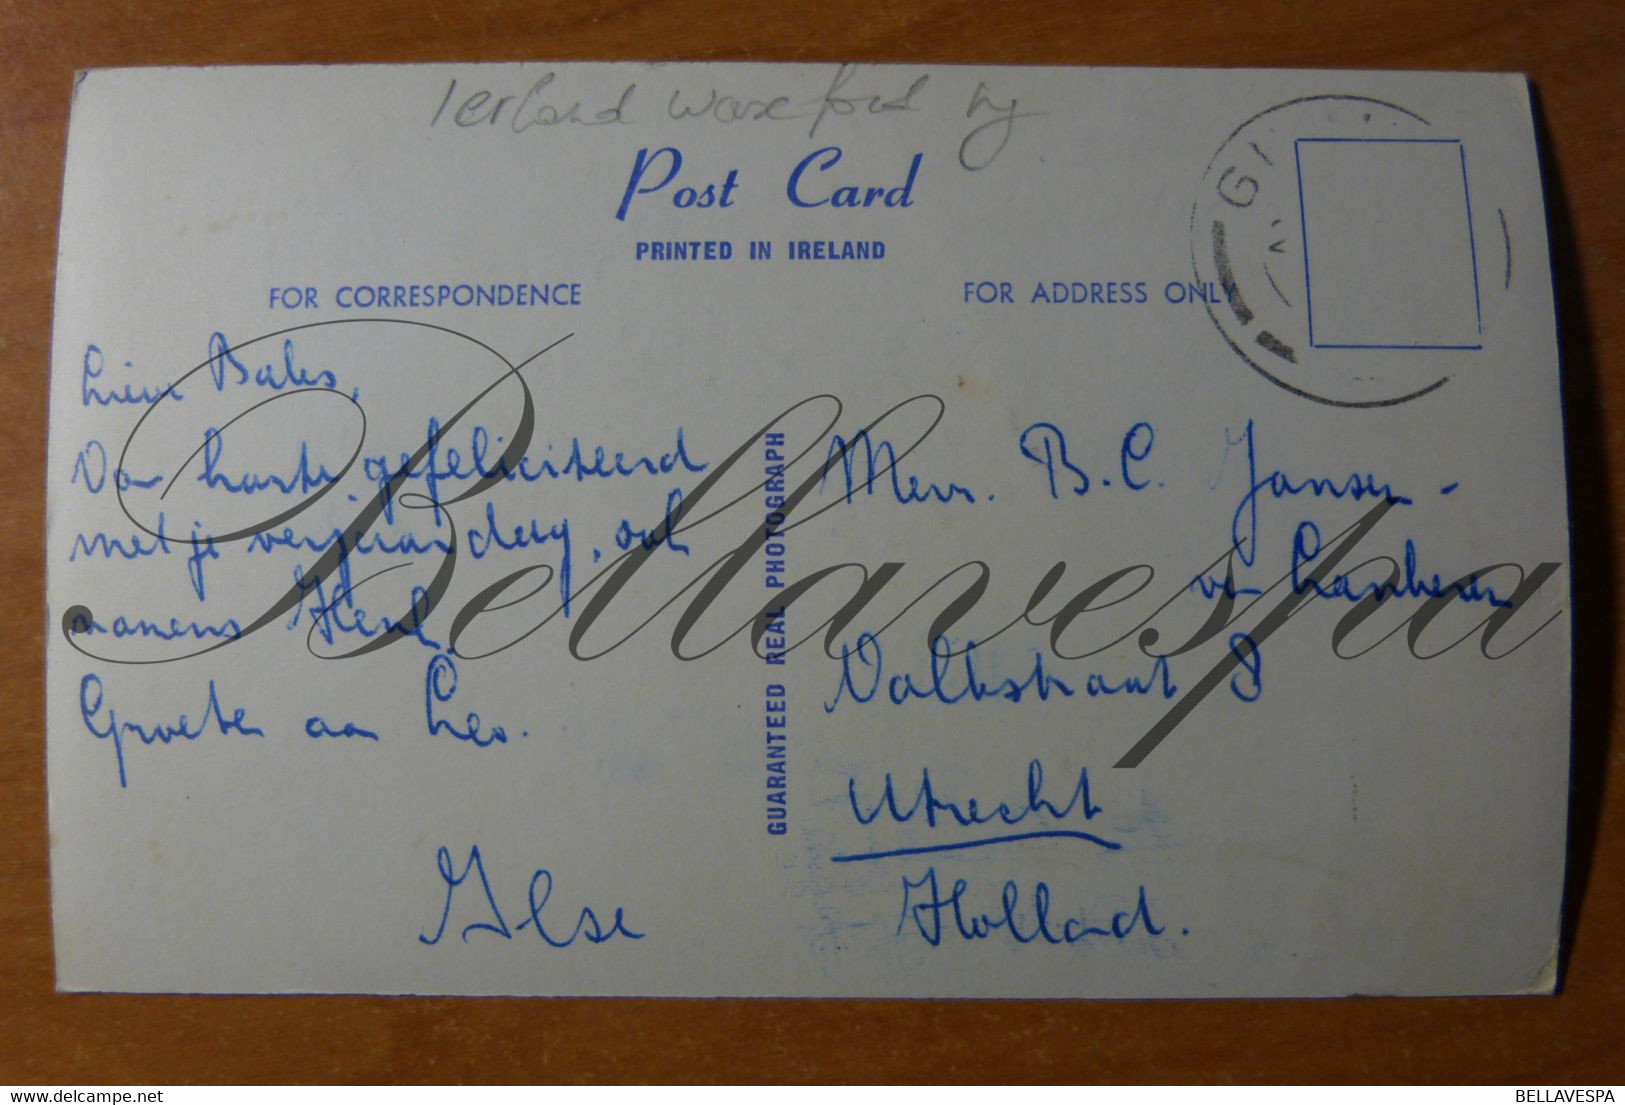 Ierland waxeford
Post Card
PRINTED IN IRELAND
FOR CORRESPONDENCE
FOR ADDRESS ONLY
GI
Lieve Babs,
Van harte gefeliciteerd
met je verjaardag, ook
namens Henk.
Groeten aan Leo.
Ilse
GUARANTEED REAL PHOTOGRAPH
Mevr. B.C. Jansen -
van
Valkstraat 8
Utrecht
Holland.
Bellavespa
delcampe.net
BELLAVESPA